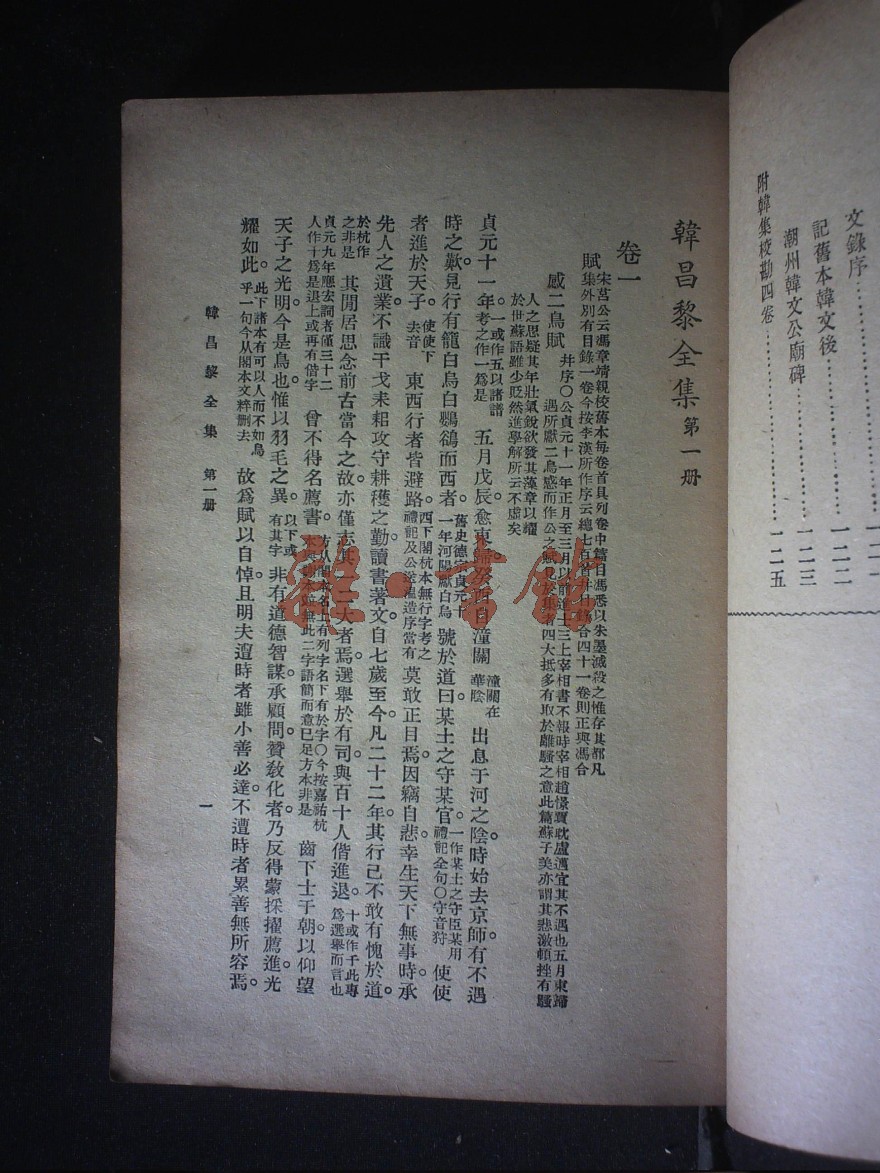 文錄序⋯⋯
記舊本韓文後⋯⋯一二二
潮州韓文公廟碑⋯⋯一二三
附韓集校勘四卷⋯⋯一二五
韓昌黎全集 第一册
卷一
賦 宋莒公云馮章靖親校舊本每卷首具列卷中篇目馮悉以朱墨滅殺之惟存其都凡
集外別有目錄一卷今按李漢所作序云總七百首幷目錄合四十一卷則正與馮合
感二鳥賦 幷序〇公貞元十一年正月至三月以前進士三上宰相書不報時宰相趙憬賈耽盧邁宜其不遇也五月東歸
遇所獻二鳥感而作公之賦見於集者四大抵多有取於離騷之意此篇蘇子美亦謂其悲激頓挫有騷
人之思疑其年壯氣銳欲發其藻章以耀
於世蘇語雖少貶然進學解所云不虛矣
貞元十一年。一或作五以諸譜考之作一爲是 五月戊辰。愈東歸。癸酉自潼關 潼關在華陰 出息于河之陰。時始去京師。有不遇
時之歎。見行有籠白烏白鸜鵒而西者。舊史德宗貞元十一年河陽獻白烏 號於道曰。某土之守某官。一作某土之守臣某用禮記全句〇守音狩 使使
者進於天子。使使下去音 東西行者皆避路。西下閣杭本無行字考之禮記及公送溫造序當有 莫敢正目焉。因竊自悲。幸生天下無事時。承
先人之遺業。不識干戈耒耜攻守耕穫之勤。讀書著文。自七歲至今。凡二十二年。其行已不敢有愧於道。
於杭作之非是 其閒居思念前古當今之故。亦僅志其一二大者焉。選舉於有司。與百十人偕進退。十或作千此專爲選舉而言也
貞元九年應宏詞者僅三十二人作十爲是退上或再有偕字 曾不得名薦書。方从閣本名上有列字名下有於字〇今按嘉祐杭本與諸本並無此二字語簡而意已足方本非是 齒下士于朝。以仰望
天子之光明。今是鳥也。惟以羽毛之異。以下或有其字 非有道德智謀。承顧問。贊敎化者。乃反得蒙採擢薦進。光
耀如此。此下諸本有可以人而不如鳥乎一句今从閣本文粹删去 故爲賦以自悼。且明夫遭時者雖小善必達。不遭時者累善無所容焉。
韓昌黎全集 第一册 一